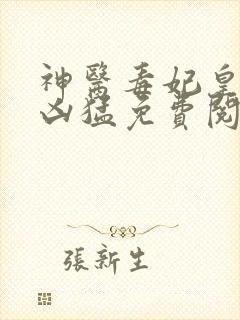 神醫毒妃皇
凶猛免費閱
張新生